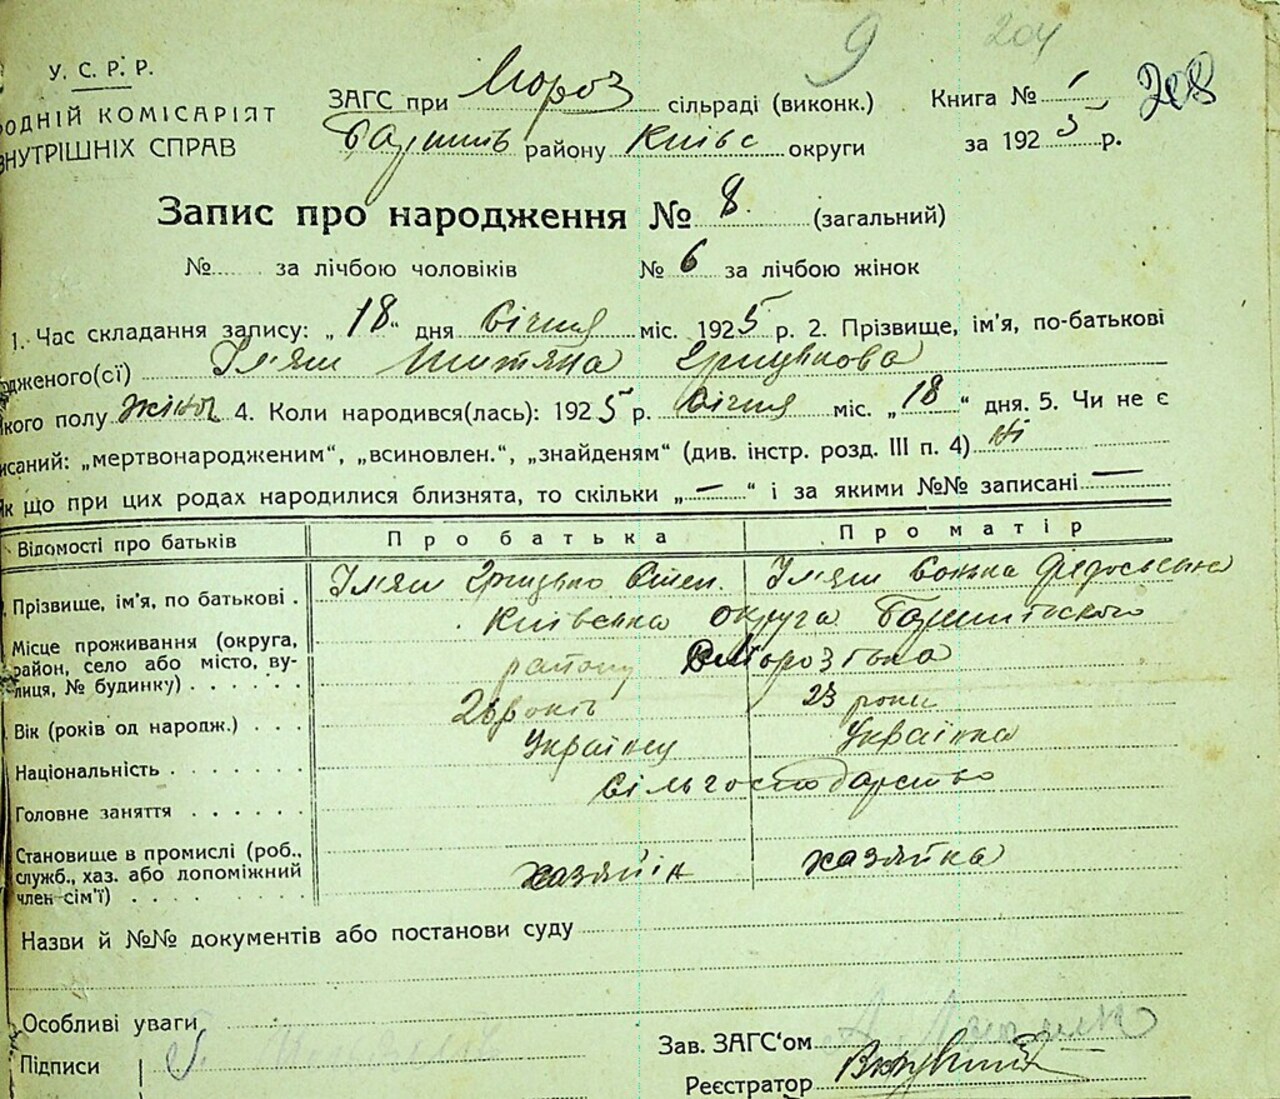 9 204
У. С. Р. Р.
ОДНІЙ КОМІСАРІЯТ
ВНУТРІШНІХ СПРАВ
ЗАГС при Мороз сільраді (виконк.)
району Київс округи
Книга № 1 208
за 1925 р.
Запис про народження № 8. (загальний)
№...... за лічбою чоловіків № 6 за лічбою жінок
1. Час складання запису: „18“ дня Січня міс. 1925 р. 2. Прізвище, ім'я, по-батькові
одженого(сі) Їл'яш Грицькова
кого полу жіноч 4. Коли народився(лась): 1925 р. Січня міс. „18“ дня. 5. Чи не є
исаний: „мертвонародженим“, „всиновлен.“, „знайденям“ (див. інстр. розд. III п. 4) Ні
Як що при цих родах народилися близнята, то скільки „—“ і за якими №№ записані —
Відомості про батьків Про батька Про матір
Прізвище, ім'я, по батькові . Їл'яш Грицько Степ. Їл'яш Федосьевна
Місце проживання (округа, район, село або місто, вулиця, № будинку) . . . . . . Київська округа
району Морозівка
Вік (років од народж.) . . . 26 років 23 роки
Національність . . . . . . . Українец Українка
Головне заняття . . . . . . Сільгосподарство
Становище в промислі (роб., служб., хаз. або допоміжний член сім'ї) . . . . . . . хазяйін хазяйка
Назви й №№ документів або постанови суду
Особливі уваги
Підписи
Зав. ЗАГС'ом
Реєстратор